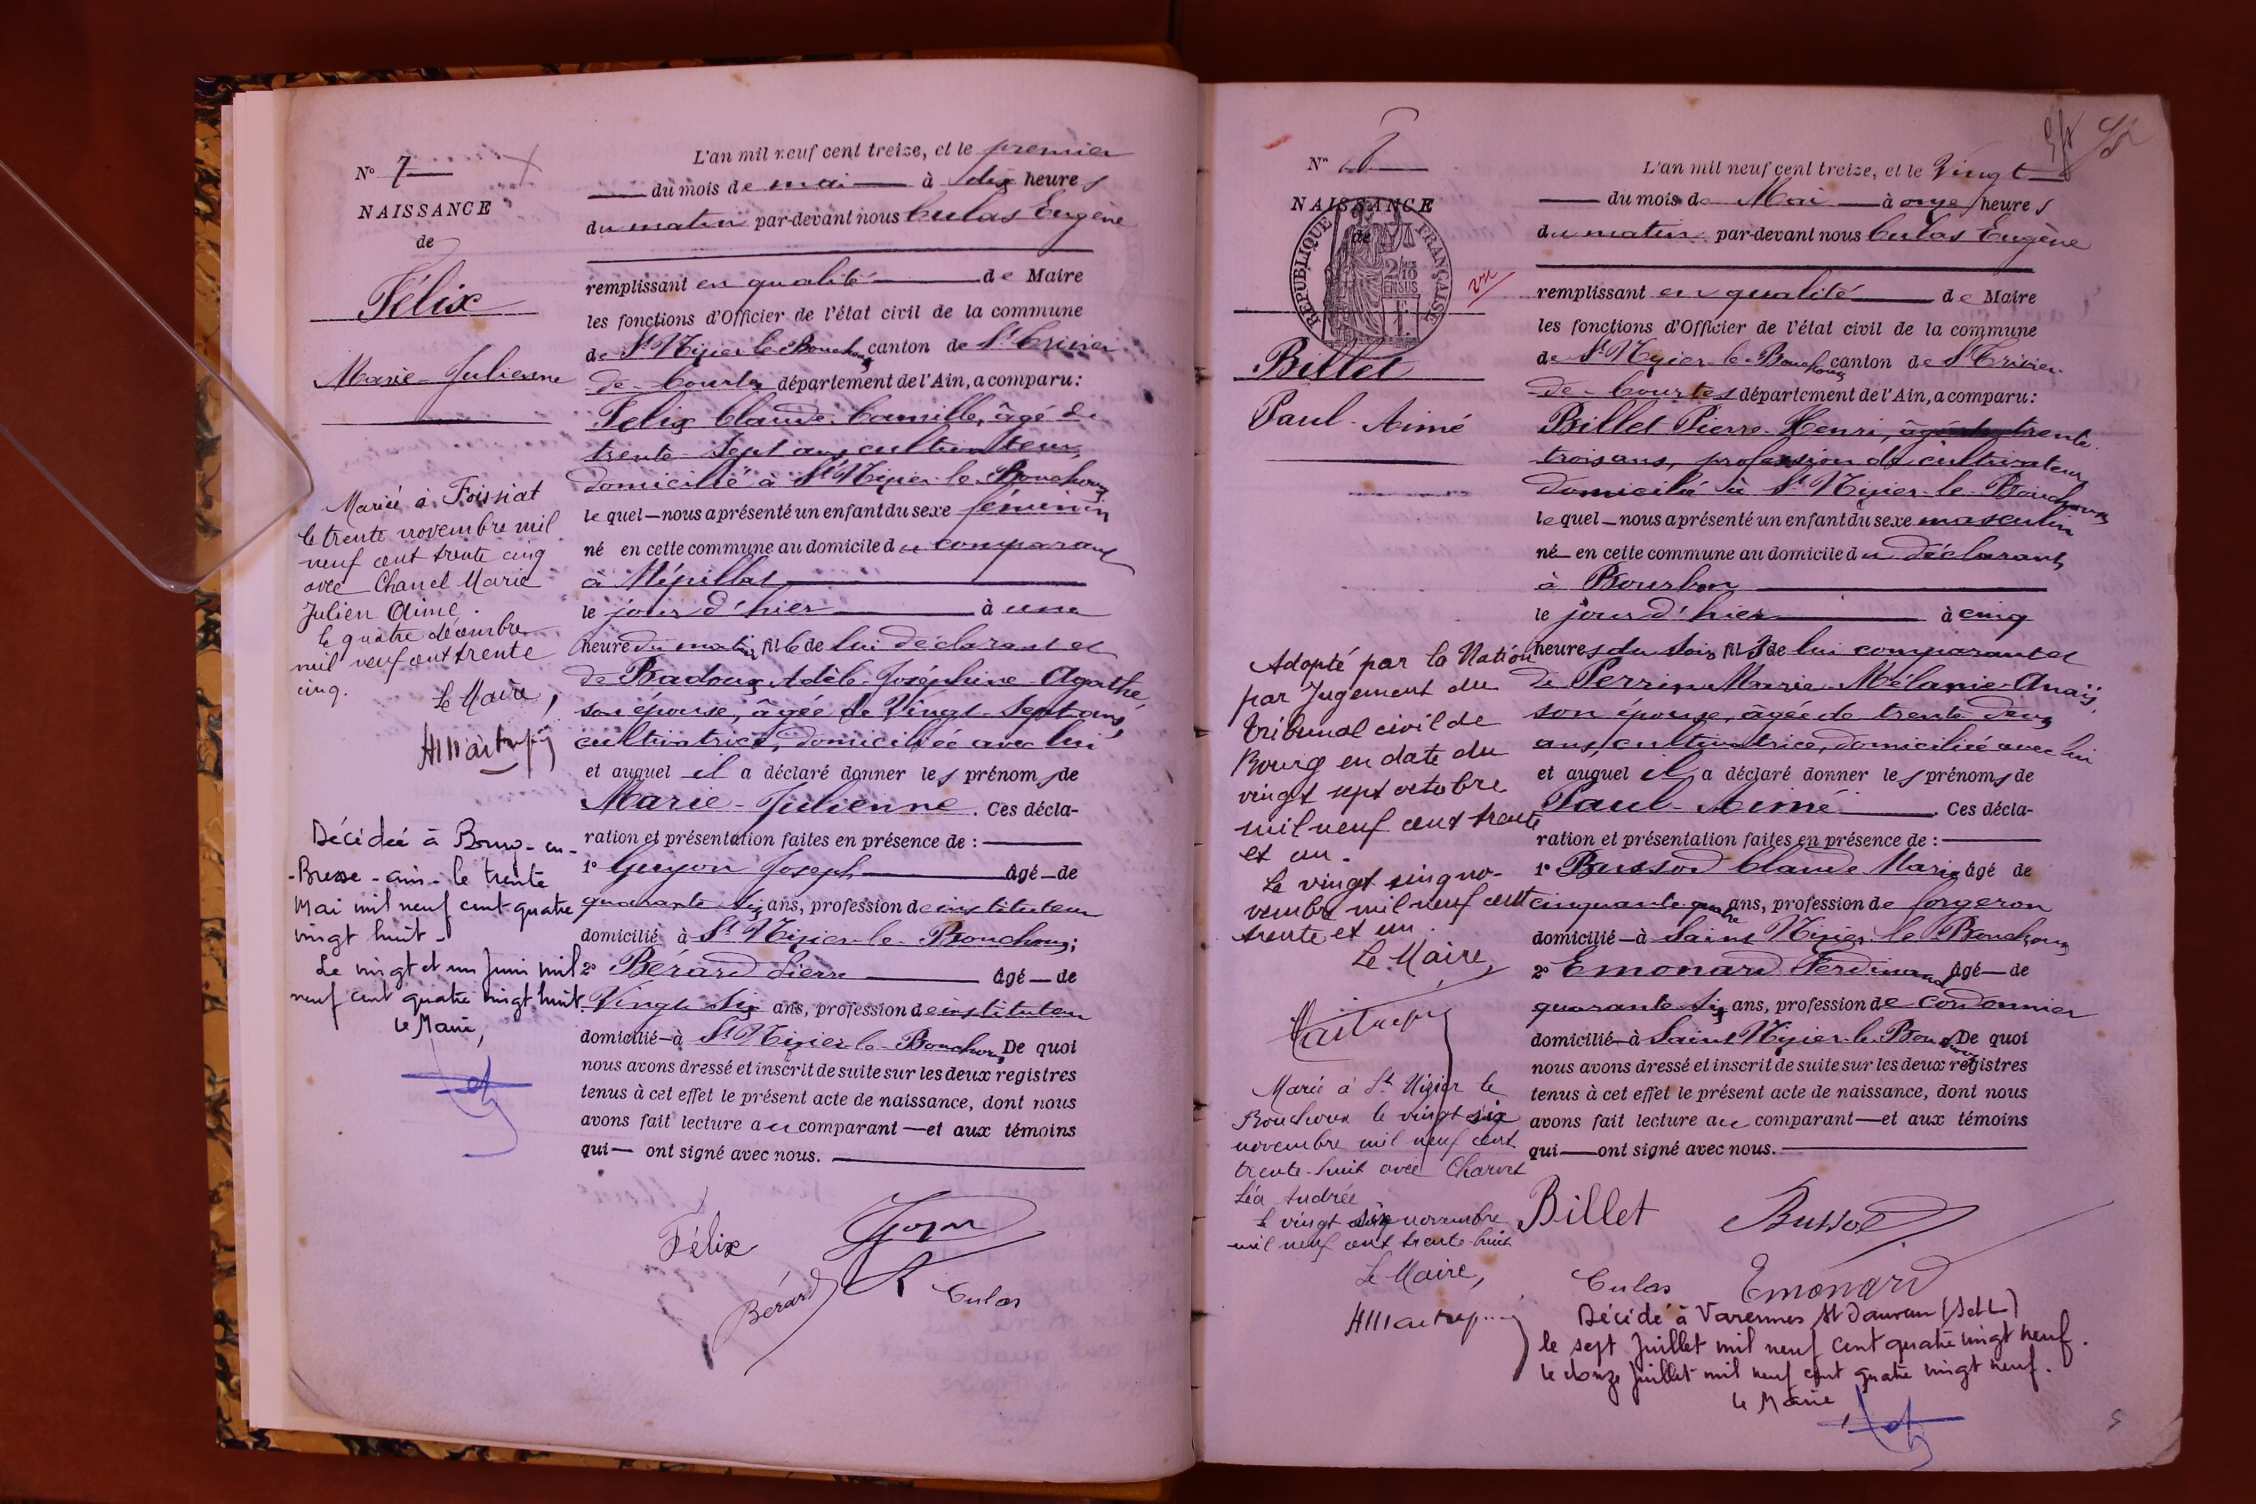 N° 7
NAISSANCE
de
Félix
Marie-Julienne
Mariée à Foissiat
le trente novembre mil
neuf cent trente cinq
avec Chanel Marie
Julien Aimé.
le quatre décembre
mil neuf cent trente
cinq.
Le Maire,
Décédée à Bourg-en-
-Bresse-ain- le trente
Mai mil neuf cent quatre
vingt huit-
Le vingt et un Juin mil
neuf cent quatre vingt huit.
le Maire,
L'an mil neuf cent treize, et le premier
du mois de mai à dix heures
du matin par-devant nous Culas Eugène
remplissant en qualité de Maire
les fonctions d'Officier de l'état civil de la commune
de St Nizier le Bouchoux canton de St Trivier
de Courtes département de l'Ain, a comparu :
Félix Claude Camille, âgé de
trente-sept ans, cultivateur,
domicilié à St Nizier-le-Bouchoux
lequel nous a présenté un enfant du sexe féminin
né en cette commune au domicile du comparant
à Népillat
le jour d'hier à une
heure du matin, fille de lui déclarant et
de Badoux Adèle-Joséphine-Agathe,
son épouse, âgée de Vingt-Sept ans,
cultivatrice, domiciliée avec lui
et auquel il a déclaré donner les prénoms de
Marie-Julienne. Ces décla-
ration et présentation faites en présence de :
1° Guyon Joseph âgé de
quarante six ans, profession de instituteur
domicilié à St Nizier-le-Bouchoux;
2° Bérard Pierre âgé de
Vingt-six ans, profession de instituteur
domicilié à St Nizier-le-Bouchoux De quoi
nous avons dressé et inscrit de suite sur les deux registres
tenus à cet effet le présent acte de naissance, dont nous
avons fait lecture au comparant et aux témoins
qui ont signé avec nous.
Félix Guyon
Bérard Culas
N° 8
NAISSANCE
de
RÉPUBLIQUE FRANÇAISE
Billet
Paul-Aimé
vu
Adopté par la Nation
par Jugement du
tribunal civil de
Bourg en date du
vingt sept octobre
mil neuf cent trente
et un.
Le vingt cinq no-
vembre mil neuf cent
trente et un.
Le Maire,
Marié à St Nizier le
Bouchoux le vingt six
novembre mil neuf cent
trente-huit avec Charvet
Léa Andrée
le vingt six novembre
mil neuf cent trente huit
Le Maire,
L'an mil neuf cent treize, et le Vingt
du mois de Mai à onze heures
du matin par-devant nous Culas Eugène
remplissant en qualité de Maire
les fonctions d'Officier de l'état civil de la commune
de St Nizier-le-Bouchoux canton de St Trivier
de Courtes département de l'Ain, a comparu :
Billet Pierre-Henri, âgé de trente
trois ans, profession de cultivateur
domicilié à St Nizier-le-Bouchoux
lequel nous a présenté un enfant du sexe masculin
né en cette commune au domicile du déclarant
à Bourbon
le jour d'hier à cinq
heures du soir, fils de lui comparant et
de Perrin Marie-Mélanie-Anaïs,
son épouse, âgée de trente deux
ans, cultivatrice, domiciliée avec lui
et auquel il a déclaré donner les prénoms de
Paul-Aimé. Ces décla-
ration et présentation faites en présence de :
1° Bussod Claude Marie âgé de
cinquante quatre ans, profession de forgeron
domicilié à Saint Nizier-le-Bouchoux
2° Emonard Ferdinand âgé de
quarante six ans, profession de cordonnier
domicilié à Saint Nizier-le-Bouchoux De quoi
nous avons dressé et inscrit de suite sur les deux registres
tenus à cet effet le présent acte de naissance, dont nous
avons fait lecture au comparant et aux témoins
qui ont signé avec nous.
Billet Bussod
Culas Emonard
Décédé à Varennes St Sauveur (S et L)
le sept Juillet mil neuf cent quatre vingt neuf.
le douze Juillet mil neuf cent quatre vingt neuf.
le Maire,